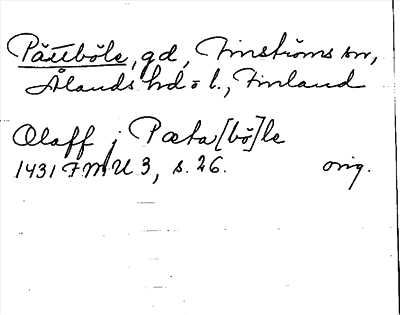 Påttböle, gd, Finströms sn,
Ålands hd o l., Finland
Olaff j Pæta[bö]le
1431 FMU 3, s. 26. orig.